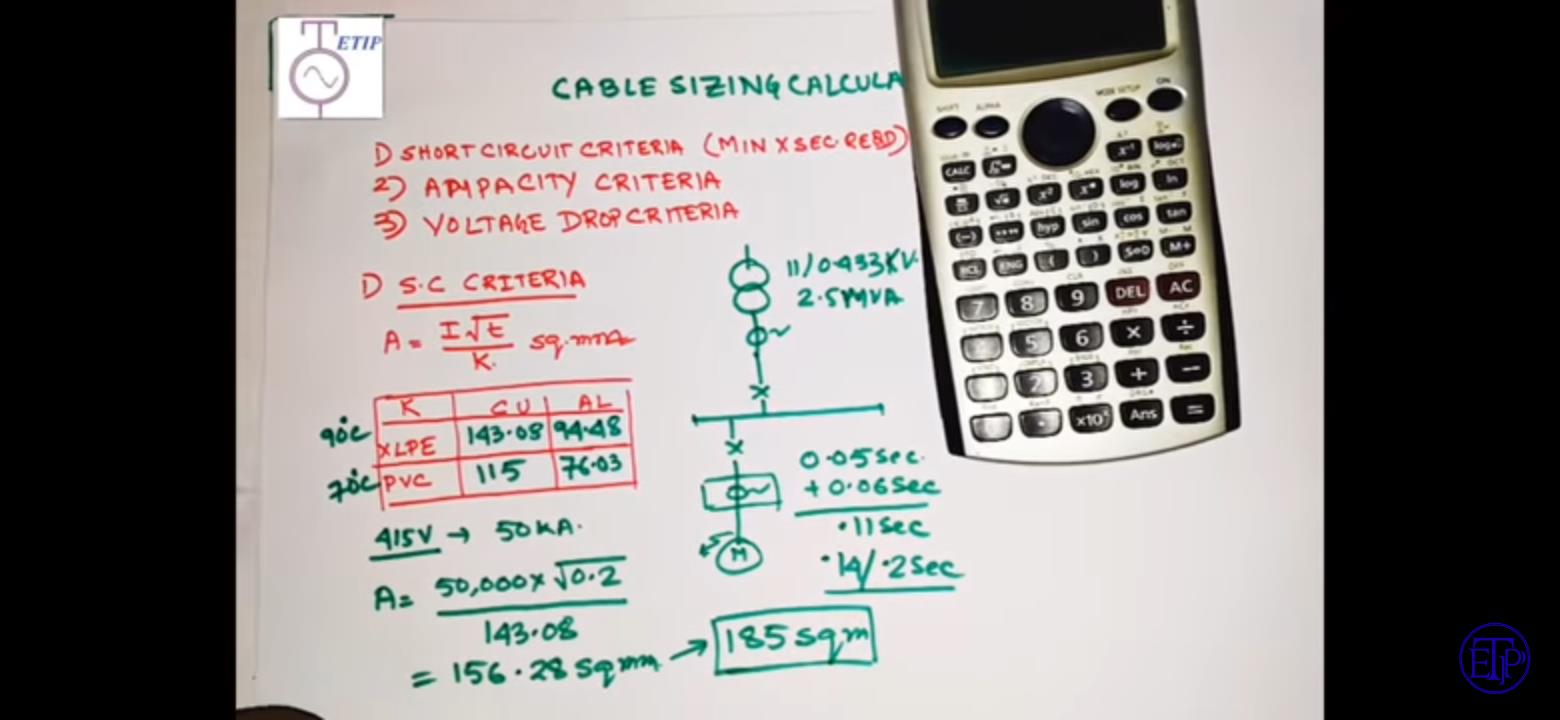 ETIP
CABLE SIZING CALCULA
1) SHORT CIRCUIT CRITERIA (MIN X SEC. REQD)
2) AMPACITY CRITERIA
3) VOLTAGE DROP CRITERIA
1) S.C CRITERIA
A = I√t / K. sq.mm
K CU AL
90°C XLPE 143.08 94.48
70°C PVC 115 76.03
415V → 50KA.
A = 50,000 x √0.2 / 143.08
= 156.28 sqmm → 185 sqm
11/0.433KV.
2.5MVA
M
0.05 Sec.
+ 0.06 Sec
.11 Sec
.14/.2 Sec
SHIFT ALPHA MODE SETUP ON
CALC x⁻¹
x² log ln
(−) hyp sin cos tan
RCL ENG ( ) S⇔D M+
7 8 9 DEL AC
5 6 × ÷
2 3 + −
. Ans =
ETIP